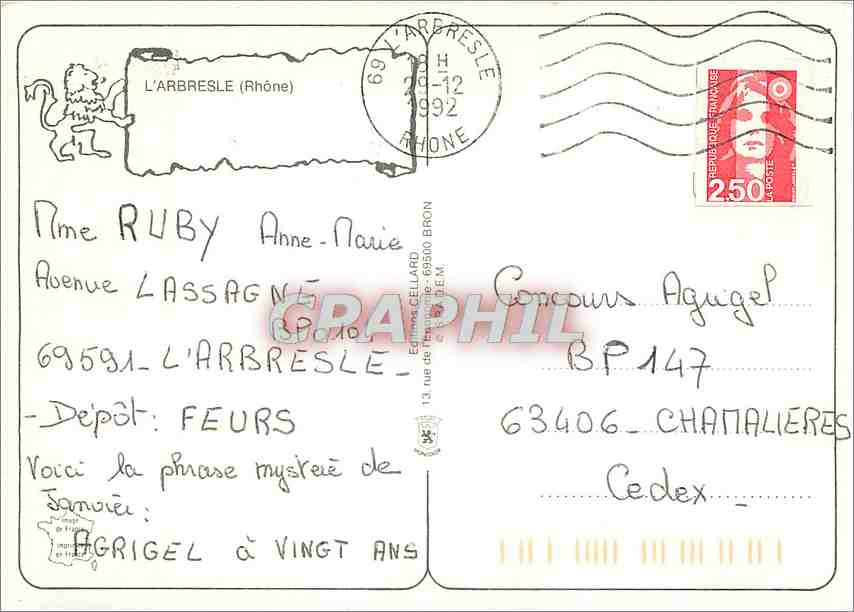 L'ARBRESLE (Rhône)
69 L'ARBRESLE
8H
29-12
1992
RHONE
REPUBLIQUE FRANÇAISE
LA POSTE
2,50
Mme RUBY Anne-Marie
Avenue LASSAGNE
BP 010
69591 - L'ARBRESLE -
- Dépôt : FEURS
Voici la phrase mystère de
Janvier :
AGRIGEL à VINGT ANS
Image
de France
imprimée
en France
Editions CELLARD
13, rue de l'Epargne - 69500 BRON
GRAPHIL
Concours Agrigel
BP 147
63406 - CHAMALIERES
Cedex -